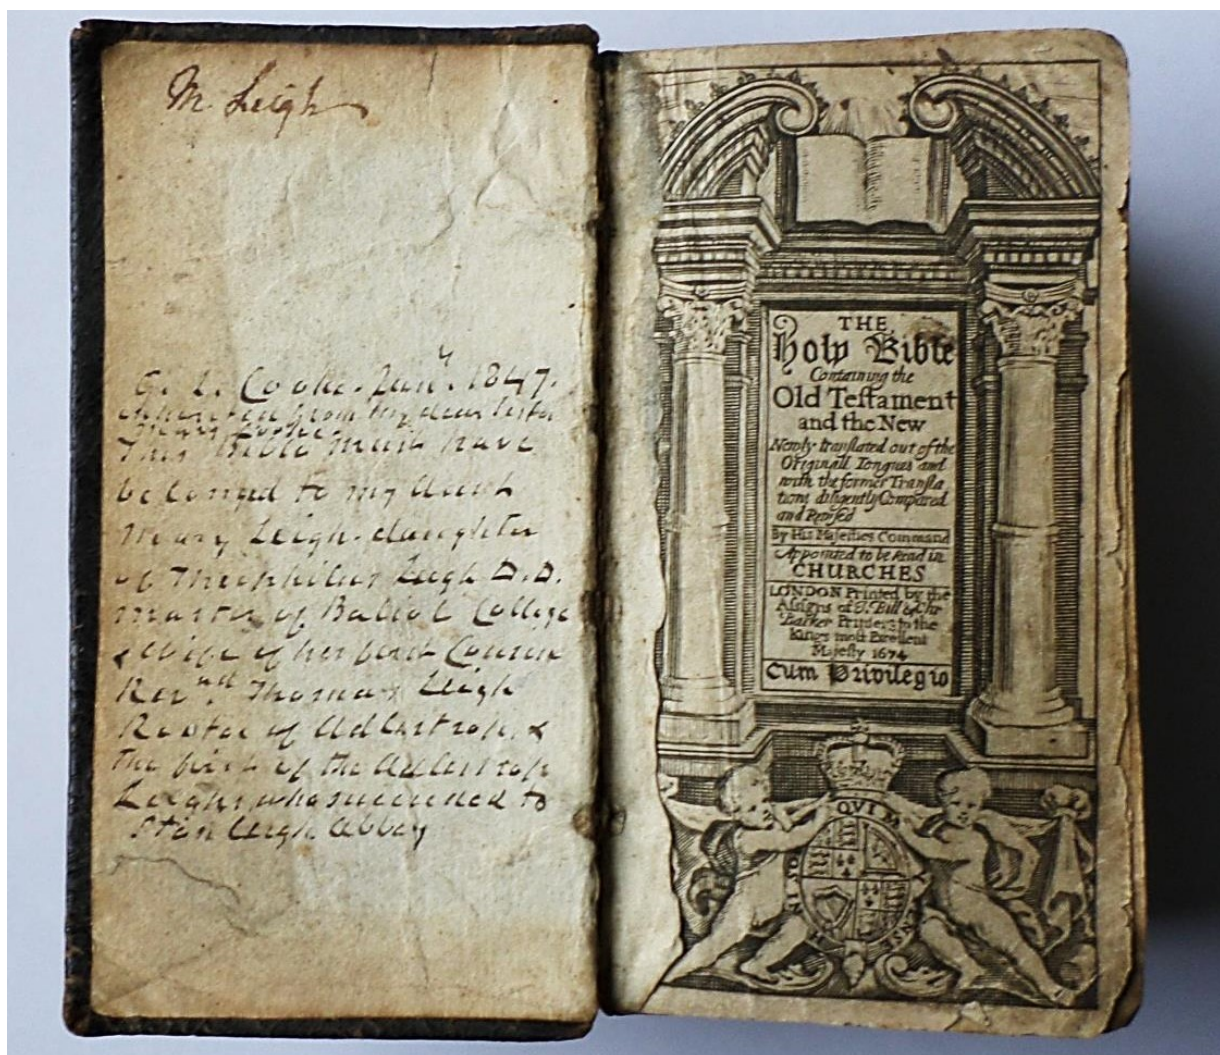 M. Leigh
G. L. Cooke. Jany. 1847.
inherited from my dear sister
Mary Cooke.
This Bible must have
belonged to my Aunt
Mary Leigh daughter
of Theophilus Leigh D.D.
Master of Baliol College
& wife of her first Cousin
Revnd Thomas Leigh
Rector of Adlestrop, &
the first of the Adlestrop
Leighs who succeeded to
Stonleigh Abbey
THE
Holy Bible
Containing the
Old Testament
and the New
Newly translated out of the
Originall Tongues and
with the former Transla
tions diligently Compared
and Revised
By His Majesties Command
Appointed to be Read in
CHURCHES
LONDON Printed by the
Assigns of J. Bill & Chr
Barker Printers to the
Kings most Excellent
Majesty 1674
Cum Privilegio
QVI M